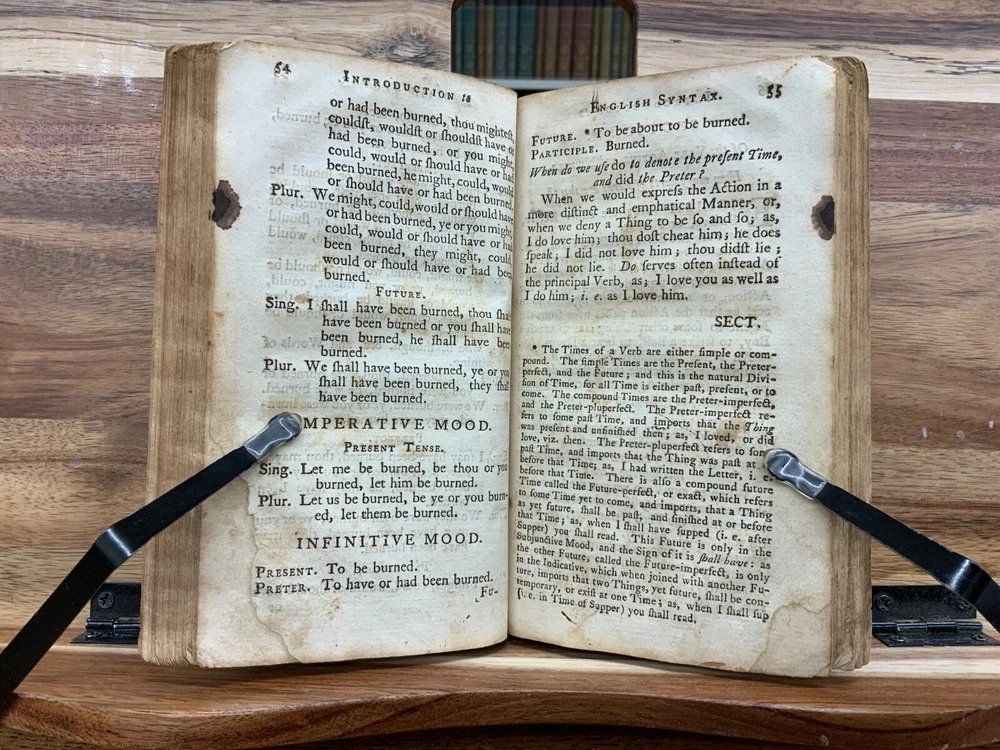 54 INTRODUCTION to
or had been burned, thou mightest,
couldſt, wouldſt or ſhouldſt have or
had been burned, or you might,
could, would or ſhould have or had
been burned, he might, could, would
or ſhould have or had been burned.
Plur. We might, could, would or ſhould have
or had been burned, ye or you might
could, would or ſhould have or had
been burned, they might, could
would or ſhould have or had been
burned.
FUTURE.
Sing. I ſhall have been burned, thou ſha
have been burned or you ſhall have
been burned, he ſhall have been
burned.
Plur. We ſhall have been burned, ye or you
ſhall have been burned, they ſhall
have been burned.
MPERATIVE MOOD.
PRESENT TENSE.
Sing. Let me be burned, be thou or you
burned, let him be burned.
Plur. Let us be burned, be ye or you burn-
ed, let them be burned.
INFINITIVE MOOD.
PRESENT. To be burned.
PRETER. To have or had been burned.
Fu-
ENGLISH SYNTAX. 55
FUTURE. * To be about to be burned.
PARTICIPLE. Burned.
When do we uſe do to denote the preſent Time,
and did the Preter?
When we would expreſs the Action in a
more diſtinct and emphatical Manner, or,
when we deny a Thing to be ſo and ſo; as,
I do love him; thou doſt cheat him; he does
ſpeak; I did not love him; thou didſt lie;
he did not lie. Do ſerves often inſtead of
the principal Verb, as; I love you as well as
I do him; i. e. as I love him.
SECT.
* The Times of a Verb are either ſimple or com-
pound. The ſimple Times are the Preſent, the Preter-
perfect, and the Future; and this is the natural Divi-
ſion of Time, for all Time is either paſt, preſent, or to
come. The compound Times are the Preter-imperfect,
and the Preter-pluperfect. The Preter-imperfect re-
fers to ſome paſt Time, and imports that the Thing
was preſent and unfiniſhed then; as, I loved, or did
love, viz. then. The Preter-pluperfect refers to ſom
paſt Time, and imports that the Thing was paſt at
before that Time; as, I had written the Letter, i. e.
before that Time. There is alſo a compound future
Time called the Future-perfect, or exact, which refers
to ſome Time yet to come, and imports, that a Thing
as yet future, ſhall be paſt, and finiſhed at or before
that Time; as, when I ſhall have ſupped (i. e. after
Supper) you ſhall read. This Future is only in the
Subjunctive Mood, and the Sign of it is ſhall have: as
the other Future, called the Future-imperfect, is only
in the Indicative, which when joined with another Fu-
ture, imports that two Things, yet future, ſhall be con-
temporary, or exiſt at one Time; as, when I ſhall ſup
(i. e. in Time of Supper) you ſhall read.